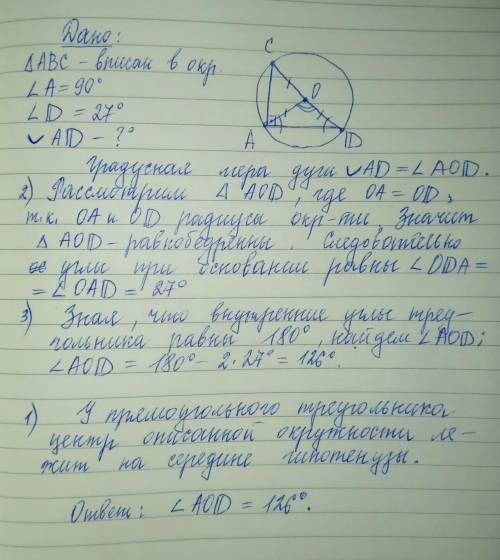 Дано:
ΔABC - вписан в окр
∠A = 90°
∠D = 27°
◡AD - ?
C
O
A
D
Градусная мера дуги ◡AD = ∠AOD.
2) Рассмотрим Δ AOD, где OA = OD,
т.к. OA и OD радиусы окр-ти, Значит
Δ AOD - равнобедренны. Следовательно
углы при основании равны ∠ODA =
= ∠OAD = 27°
3) Зная, что внутренние углы треу-
гольника равны 180°, найдем ∠AOD;
∠AOD = 180° - 2·27° = 126°.
1) У прямоугольного треугольника
центр описанной окружности ле-
жит на середине гипотенузы.
Ответ: ∠AOD = 126°.